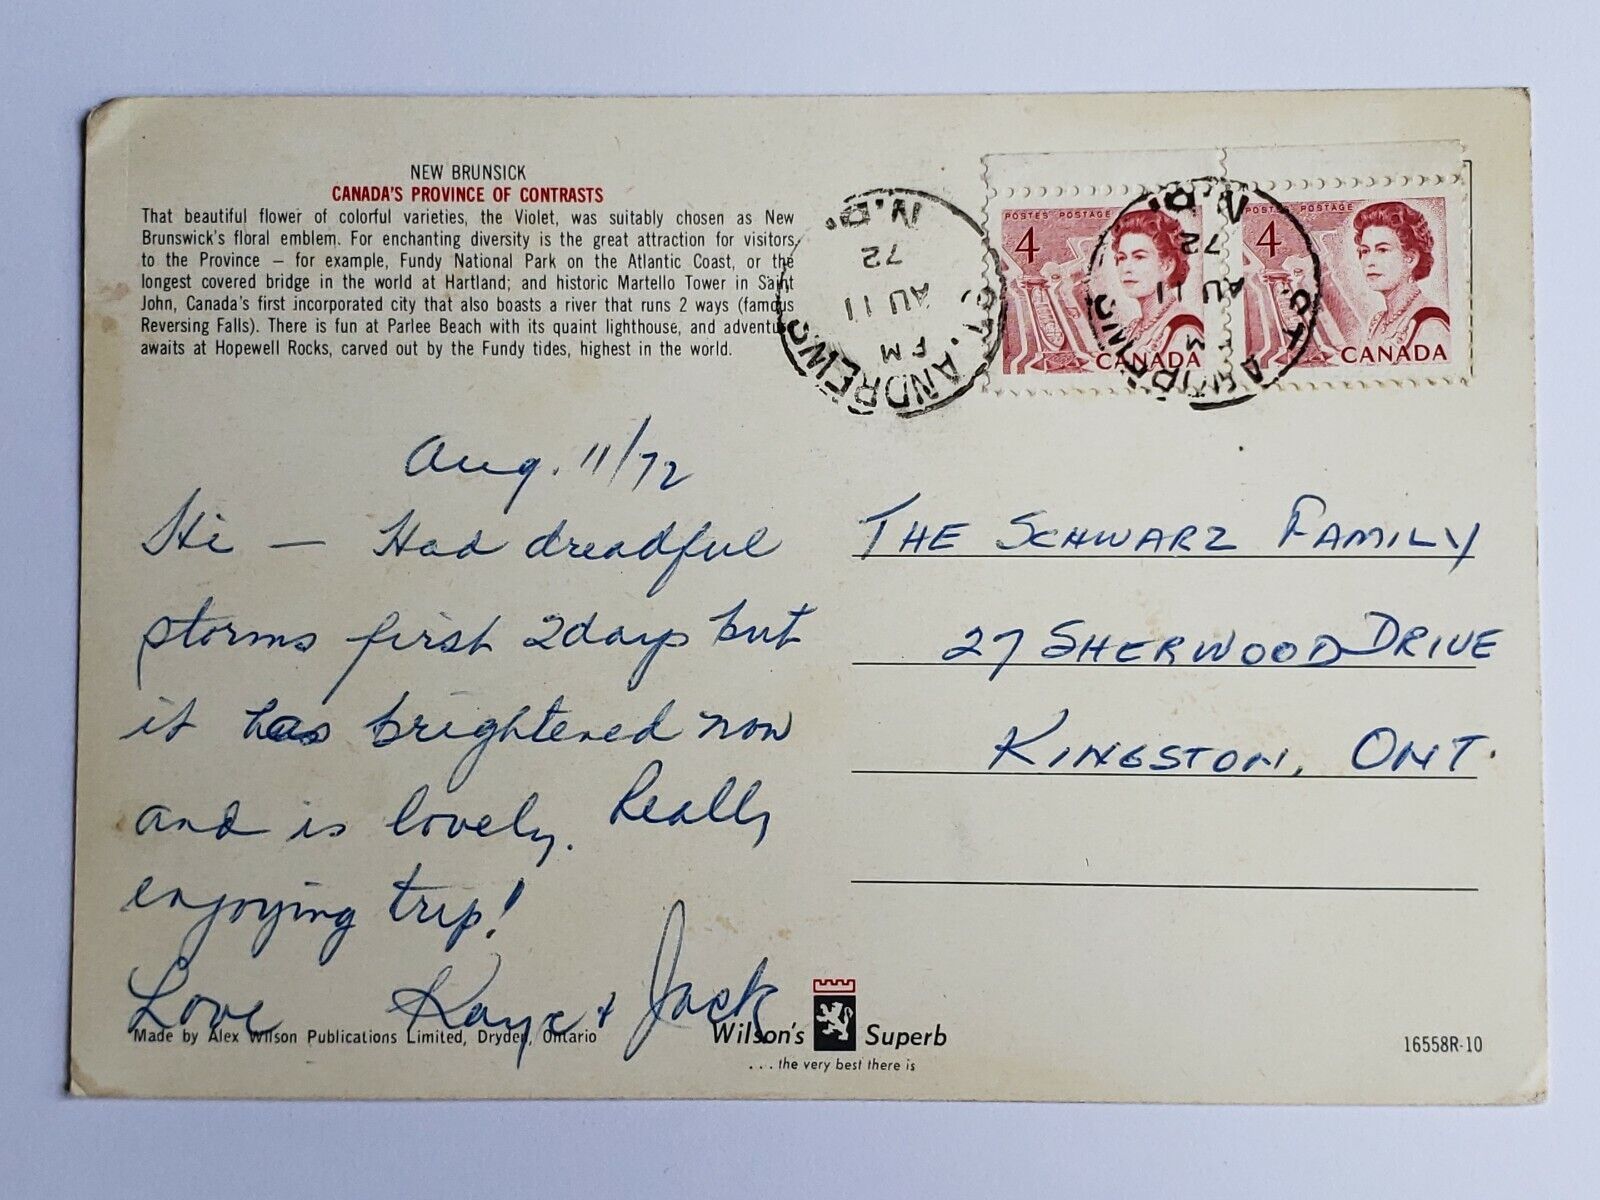 NEW BRUNSICK
CANADA'S PROVINCE OF CONTRASTS
That beautiful flower of colorful varieties, the Violet, was suitably chosen as New
Brunswick's floral emblem. For enchanting diversity is the great attraction for visitors
to the Province – for example, Fundy National Park on the Atlantic Coast, or the
longest covered bridge in the world at Hartland; and historic Martello Tower in Saint
John, Canada's first incorporated city that also boasts a river that runs 2 ways (famous
Reversing Falls). There is fun at Parlee Beach with its quaint lighthouse, and adventure
awaits at Hopewell Rocks, carved out by the Fundy tides, highest in the world.
ST. ANDREWS
PM
AU 11
72
N.B.
POSTES POSTAGE
4
CANADA
POSTES POSTAGE
4
CANADA
ST. ANDREWS
PM
AU 11
72
N.B.
Aug. 11/72
Hi — Had dreadful
storms first 2 days but
it has brightened now
and is lovely. Really
enjoying trip!
Love Kaye + Jack
THE SCHWARZ FAMILY
27 SHERWOOD DRIVE
KINGSTON, ONT.
Made by Alex Wilson Publications Limited, Dryden, Ontario
Wilson's Superb
... the very best there is
16558R-10